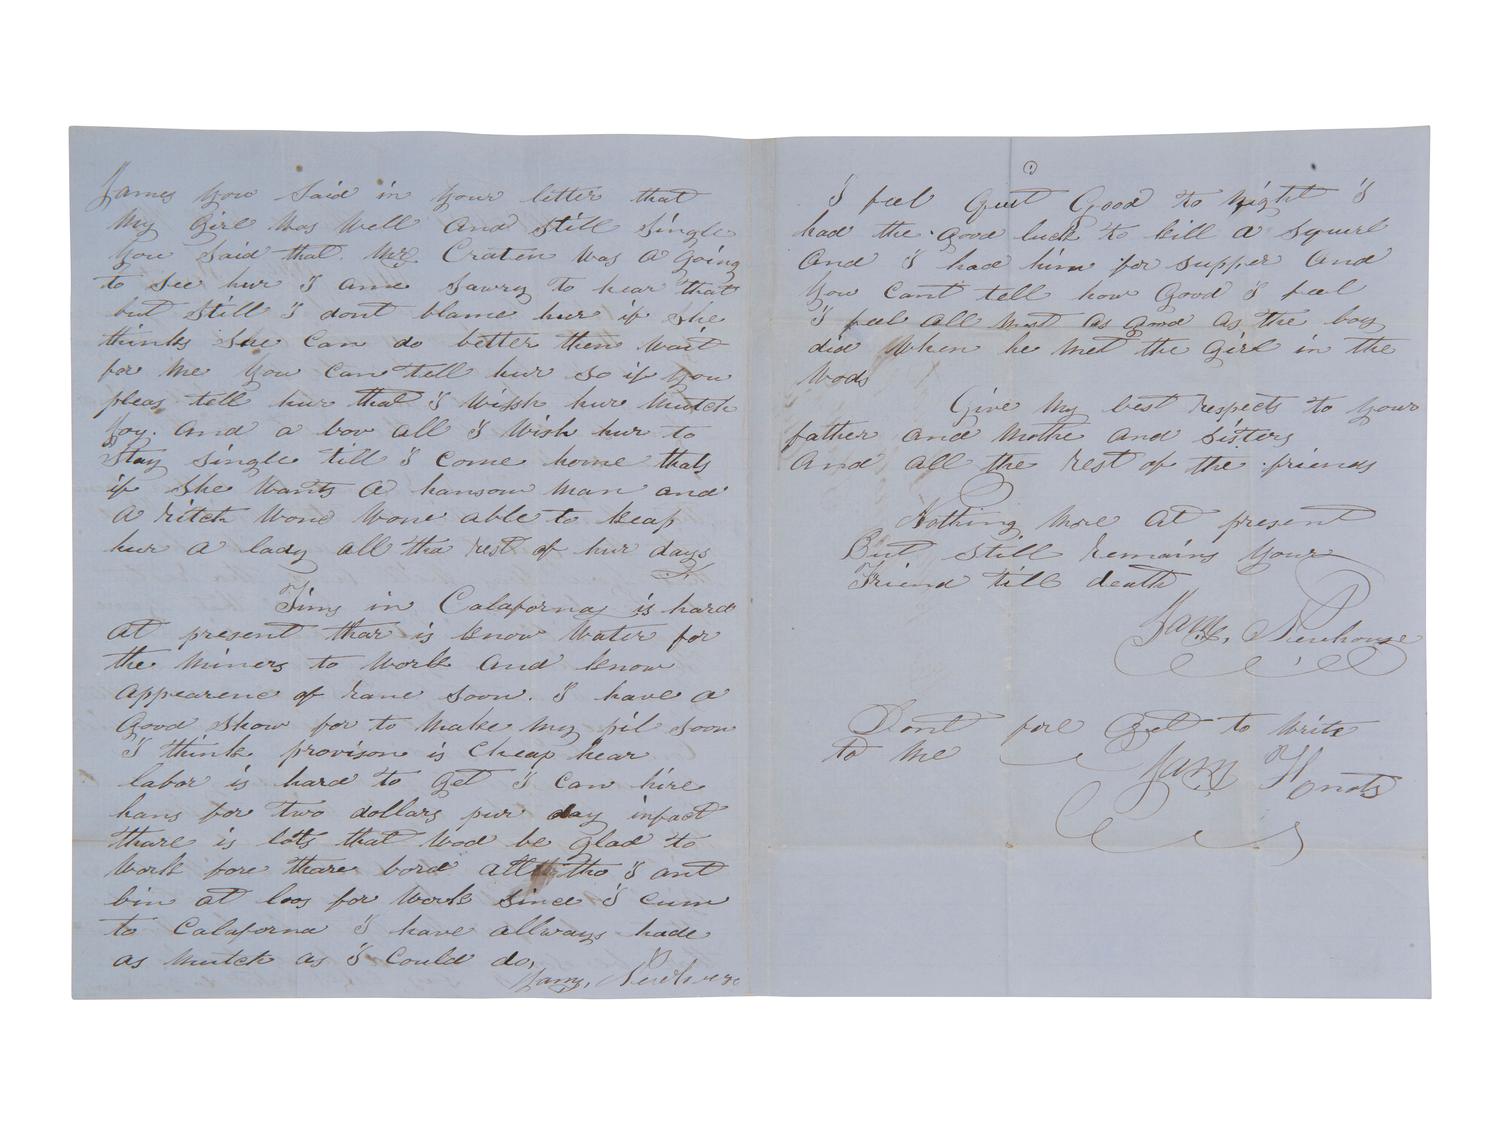 James you said in your letter that
my girl was well and still single
you said that Mr. Craten was a going
to see hur I ame sawry to hear that
but still I dont blame hur if she
thinks she can do better then wait
for me you can tell hur so if you
pleas tell hur that I wissh hur mutch
joy. and a bov all I wish hur to
stay single till I come home thats
if she wants a hansom man and
a ritch wone wone able to keap
hur a lady all tha rest of hur days
Tims in Calafornay is hard
at present thar is know water for
the miners to work and know
appearenc of rane soon. I have a
good show for to make my pil soon
I think provison is cheap hear
labor is hard to get I can hire
hans for two dollars pur day infact
thare is lots that wod be glad to
work fore thare bord all tho I ant
bin at loos for work since I cum
to Calaforna I have allways hade
as mutch as I could do,
Jams, Niewhouse
I feel quit good to night I
had the good luck to kill a squirl
and I had him for supper and
you cant tell how good I feel
I feel all most as good as the boy
did when he met the girl in the
wods
Give my best respects to your
father and mothe and sisters
and all the rest of the friends
Nothing more at present
But still remains your
Friend till death
Jams, Niewhouse
Dont fore get to write
to me
Jams